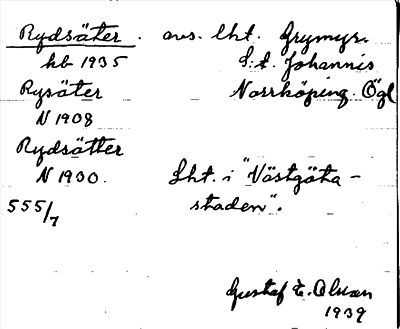 Rydsäter. avs. lht. Grymyr.
kb 1935 S:t. Johannis
Rysäter Norrköping. Ögl
N 1908
Rydsätter
N 1930. Lht. i "Västgöta-
555/7 staden".
Gustaf E. Olsson
1939